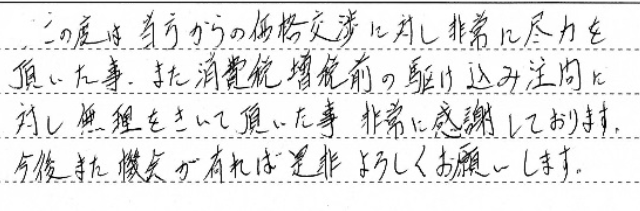 この度は当方からの価格交渉に対し非常に尽力を
頂いた事、また消費税増税前の駆け込み注問に
対し無理をきいて頂いた事 非常に感謝しております。
今後また機会が有れば是非よろしくお願いします。